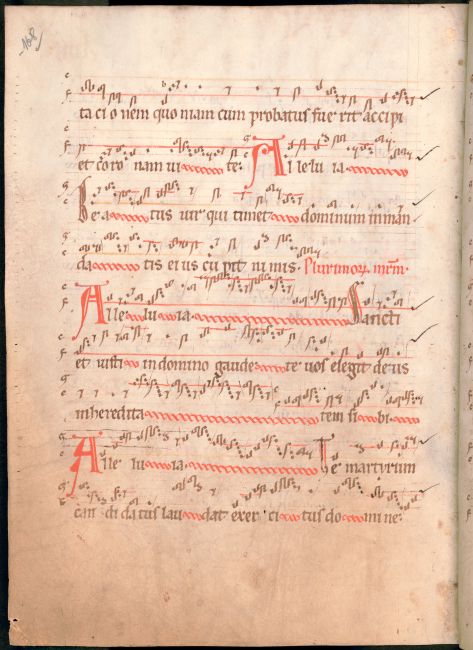 168
ta ci o nem quo niam cum probatus fue rit accipi
et coro nam ui te Alleluia
Bea tus uir qui timet dominum in man
da tis eius cu pit nimis Plurimoꝝ mr̃m
Alle lu ia Sancti
et iusti in domino gaude te uos elegit deus
in heredita tem si bi
Alle lu ia Te martyrum
can di da tus lau dat exer ci tus do mi ne